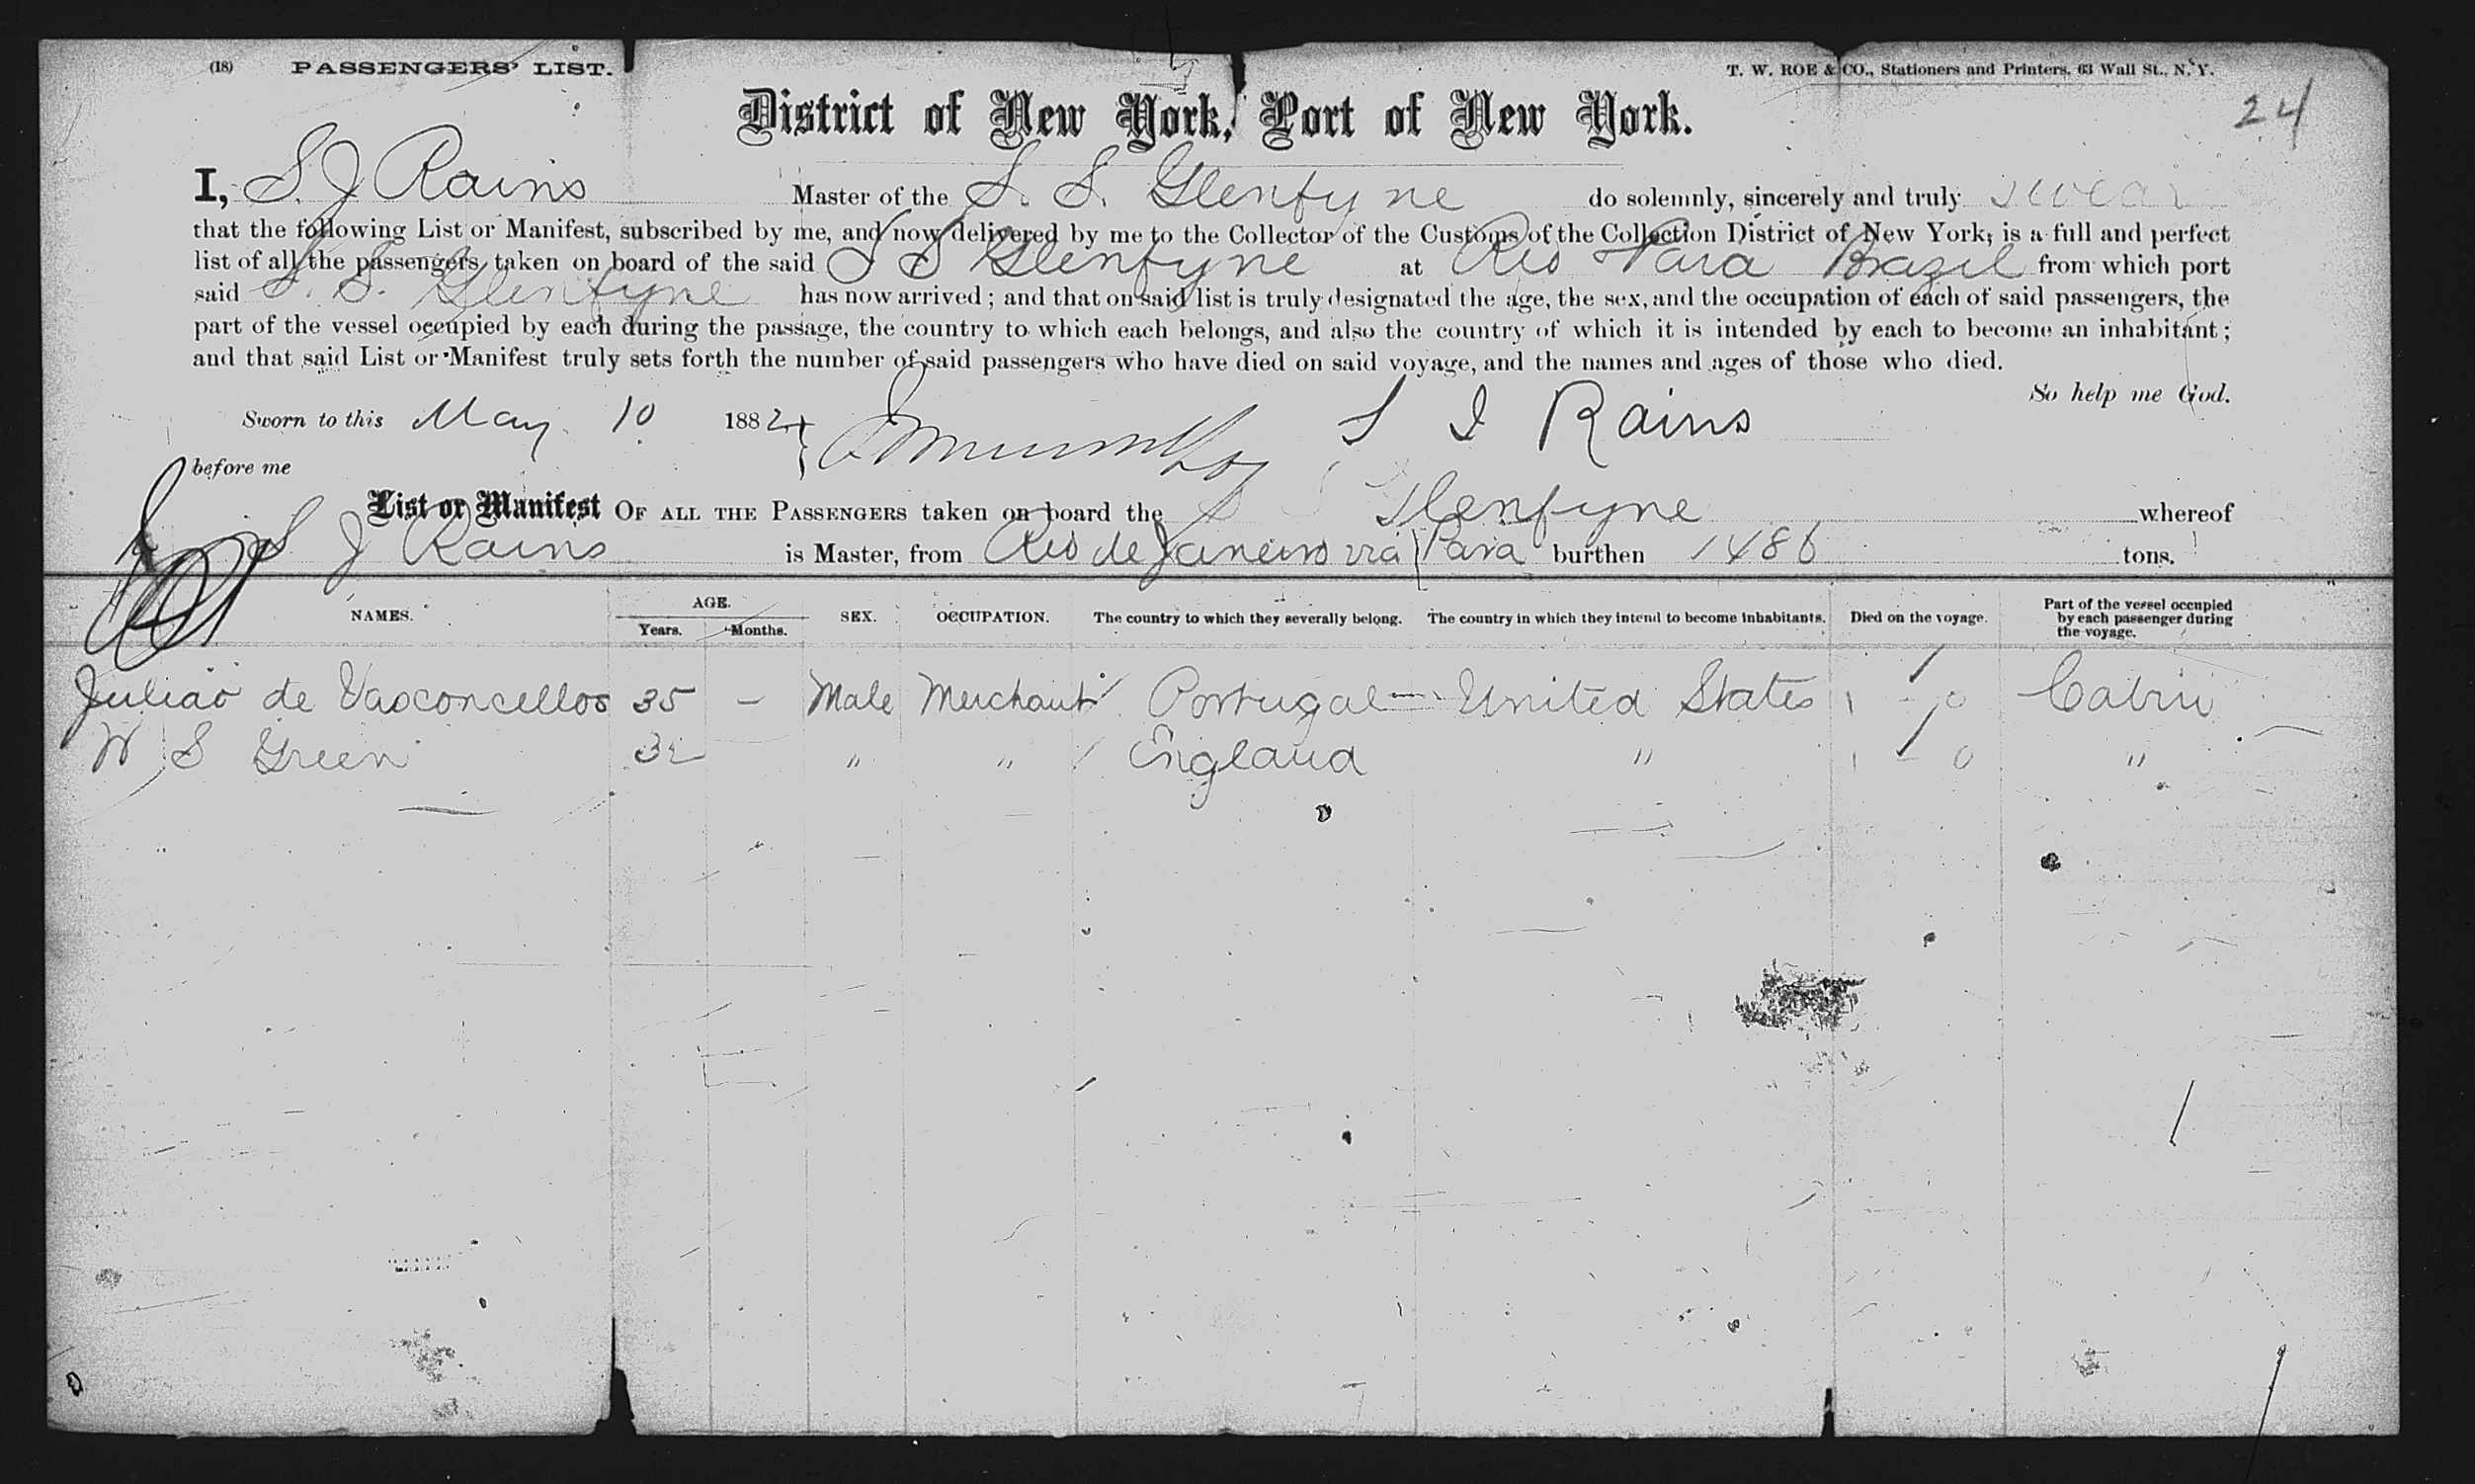 (18) PASSENGERS' LIST. T. W. ROE & CO., Stationers and Printers, 63 Wall St., N. Y.
24
District of New York, Port of New York.
I, S. J Rains Master of the S. S. Glenfyne do solemnly, sincerely and truly swear
that the following List or Manifest, subscribed by me, and now delivered by me to the Collector of the Customs of the Collection District of New York, is a full and perfect
list of all the passengers taken on board of the said S S Glenfyne at Rio & Para Brazil from which port
said S. S. Glenfyne has now arrived; and that on said list is truly designated the age, the sex, and the occupation of each of said passengers, the
part of the vessel occupied by each during the passage, the country to which each belongs, and also the country of which it is intended by each to become an inhabitant;
and that said List or Manifest truly sets forth the number of said passengers who have died on said voyage, and the names and ages of those who died.
So help me God.
Sworn to this May 10 1882 S J Rains
before me
List or Manifest OF ALL THE PASSENGERS taken on board the S S Glenfyne whereof
S J Rains is Master, from Rio de Janeiro via Para burthen 1486 tons.
NAMES. AGE. Years. Months. SEX. OCCUPATION. The country to which they severally belong. The country in which they intend to become inhabitants. Died on the voyage. Part of the vessel occupied by each passenger during the voyage.
Juliao de Vasconcellos 35 — Male Merchant Portugal United States 1 - 0 Cabin
W S Green 32 " " England " 1 - 0 "